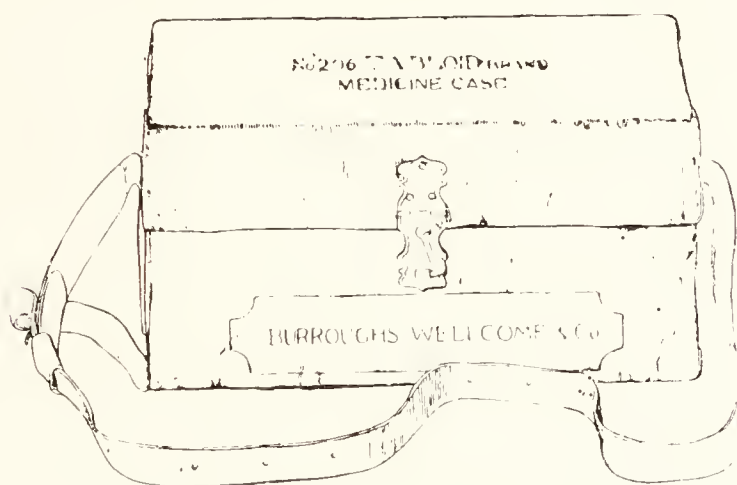 No 296 TABLOID BRAND
MEDICINE CASE
BURROUGHS WELLCOME & Co